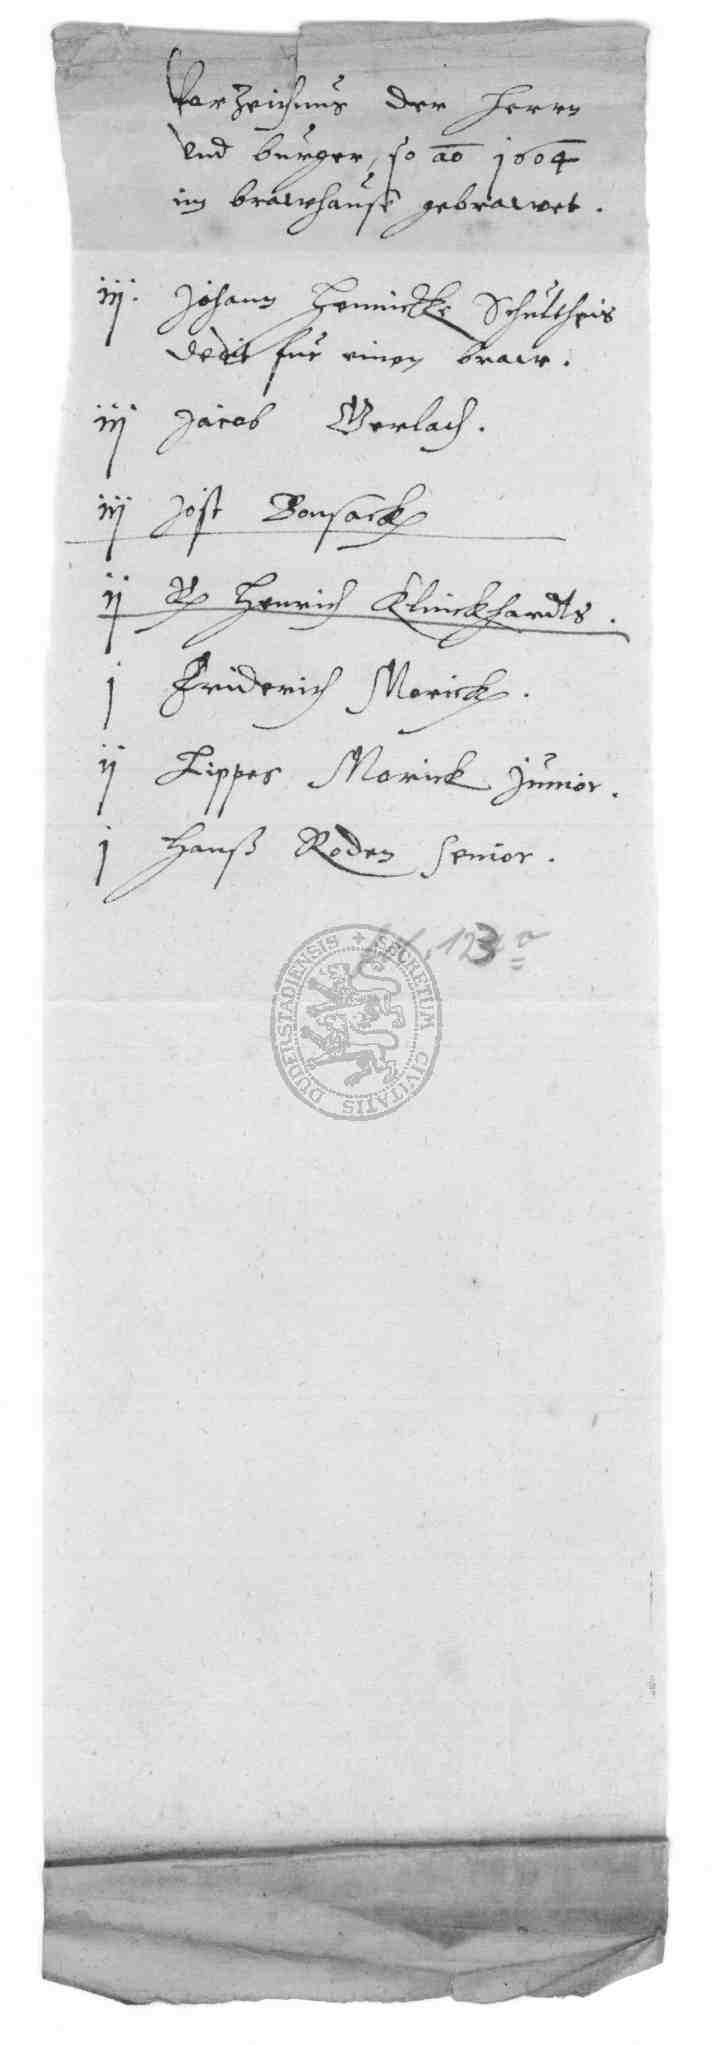 Varzeichnus der Herrn
und burger, so ao 1604
im brawhause gebrawet.
iij. Johann Hennickke Schultheis
dedit fur einen braw.
iij Jacob Gerlach.
iij Jost Bonsack
ij Henrich Klinckhardts.
j Friderich Morick.
ij Lippes Morick Junior.
j Hanß Roden senior.
123
SECRETUM CIVITATIS DUDERSTADIENSIS